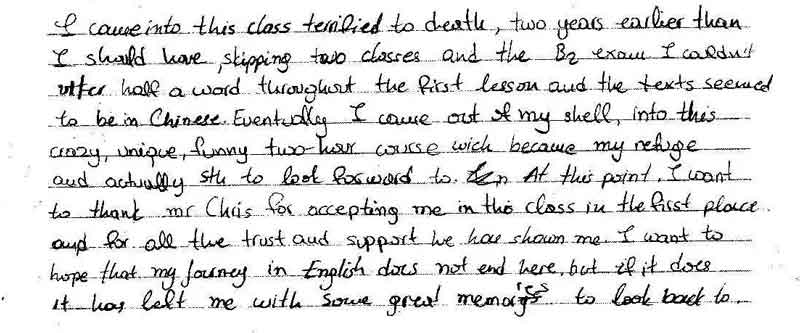 I came into this class terrified to death, two years earlier than
I should have, skipping two classes and the B2 exam I couldn't
utter half a word throughout the first lesson and the texts seemed
to be in Chinese. Eventually I came out of my shell, into this
crazy, unique, funny two-hour course wich became my refuge
and actually sth to look forward to. At this point, I want
to thank mr Chris for accepting me in this class in the first place
and for all the trust and support he has shown me. I want to
hope that my journey in English does not end here, but if it does
it has left me with some great memories to look back to.